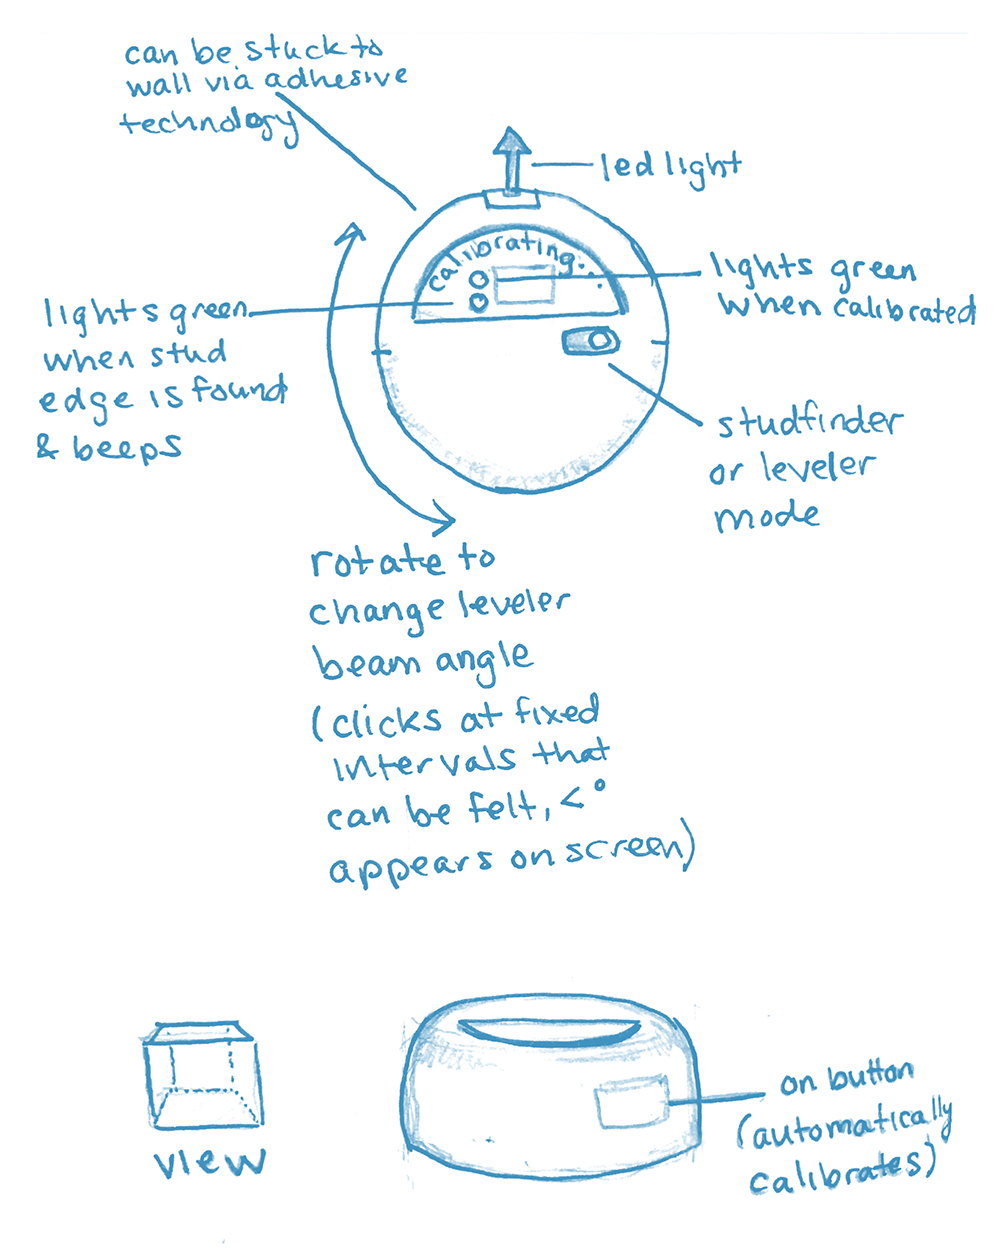 can be stuck to
wall via adhesive
technology
led light
calibrating...
lights green
when calibrated
lights green
when stud
edge is found
& beeps
studfinder
or leveler
mode
rotate to
change leveler
beam angle
(clicks at fixed
intervals that
can be felt, <°
appears on screen)
view
on button
(automatically
calibrates)